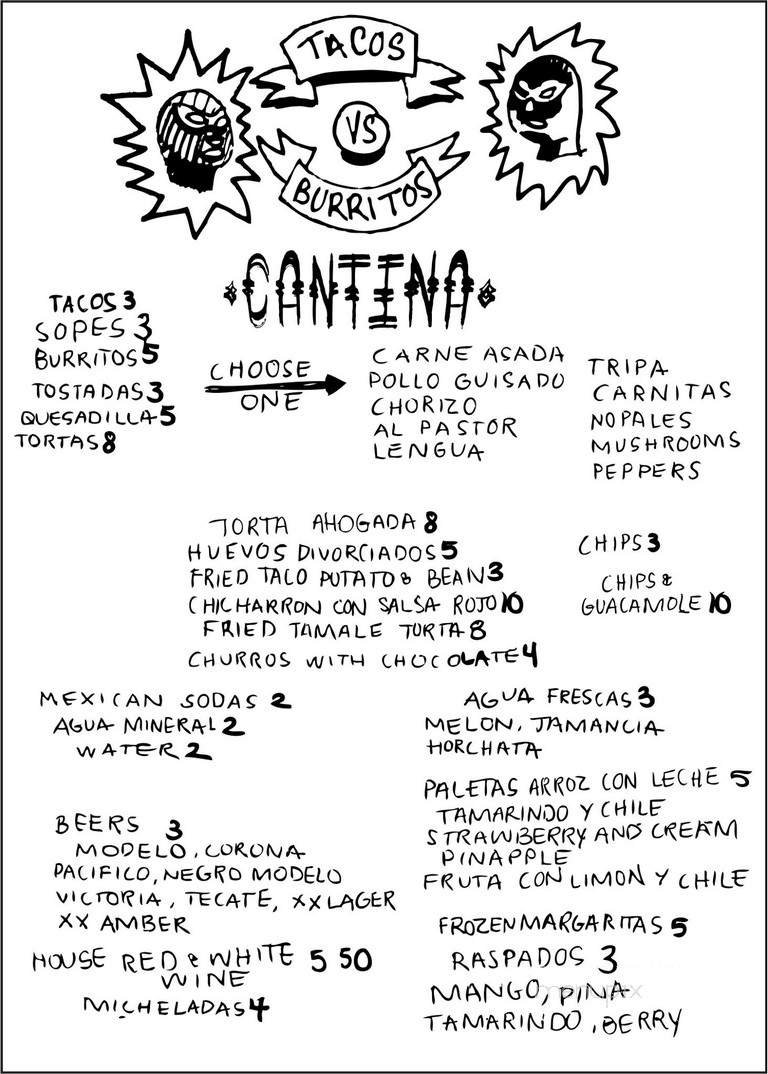 TACOS
VS
BURRITOS
CANTINA
TACOS 3
SOPES 3
BURRITOS 5
TOSTADAS 3
QUESADILLA 5
TORTAS 8
CHOOSE
ONE
CARNE ASADA
POLLO GUISADO
CHORIZO
AL PASTOR
LENGUA
TRIPA
CARNITAS
NOPALES
MUSHROOMS
PEPPERS
TORTA AHOGADA 8
HUEVOS DIVORCIADOS 5
FRIED TACO POTATO & BEAN 3
CHICHARRON CON SALSA ROJO 10
FRIED TAMALE TORTA 8
CHURROS WITH CHOCOLATE 4
CHIPS 3
CHIPS &
GUACAMOLE 10
MEXICAN SODAS 2
AGUA MINERAL 2
WATER 2
AGUA FRESCAS 3
MELON, JAMANCIA
HORCHATA
PALETAS ARROZ CON LECHE 5
TAMARINDO Y CHILE
STRAWBERRY AND CREAM
PINAPPLE
FRUTA CON LIMON Y CHILE
BEERS 3
MODELO, CORONA
PACIFICO, NEGRO MODELO
VICTORIA, TECATE, XX LAGER
XX AMBER
HOUSE RED & WHITE 5 50
WINE
MICHELADAS 4
FROZEN MARGARITAS 5
RASPADOS 3
MANGO, PINA
TAMARINDO, BERRY